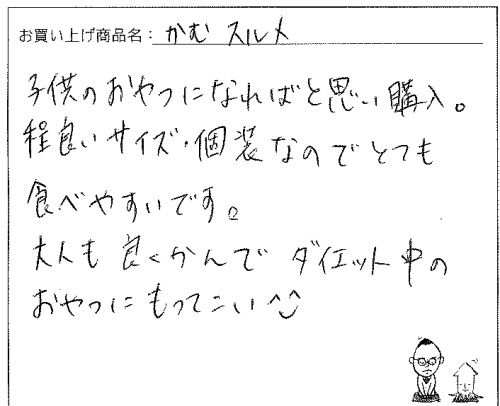 お買い上げ商品名：かむスルメ
子供のおやつになればと思い購入。
程良いサイズ・個装なのでとても
食べやすいです。
大人も良くかんでダイエット中の
おやつにもってこい^^